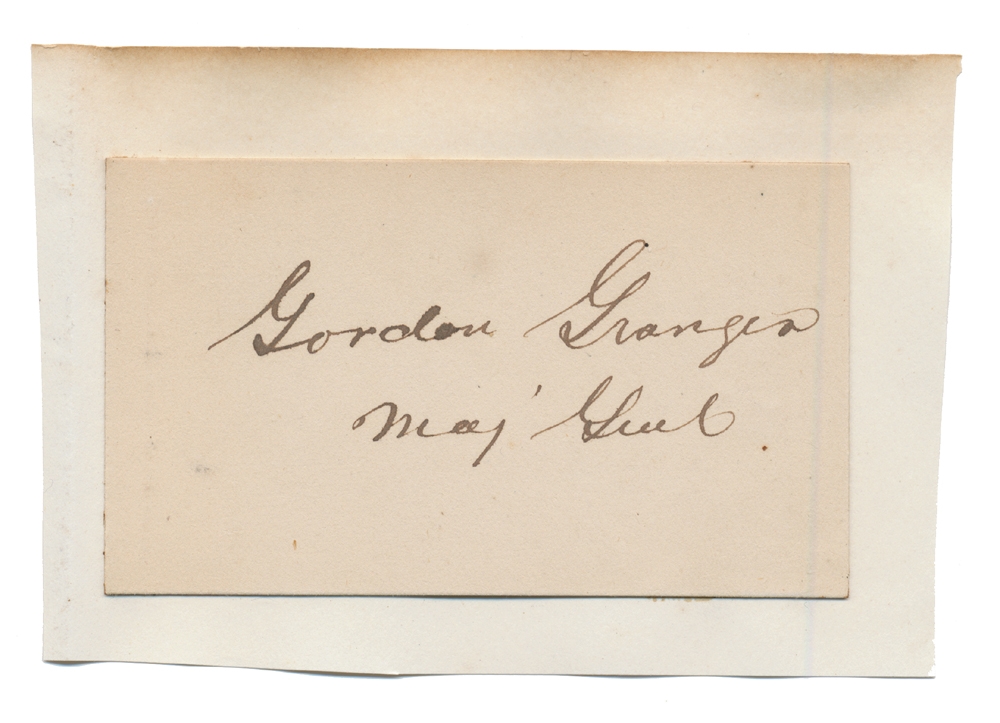 Gordon Granger
Maj' Genl